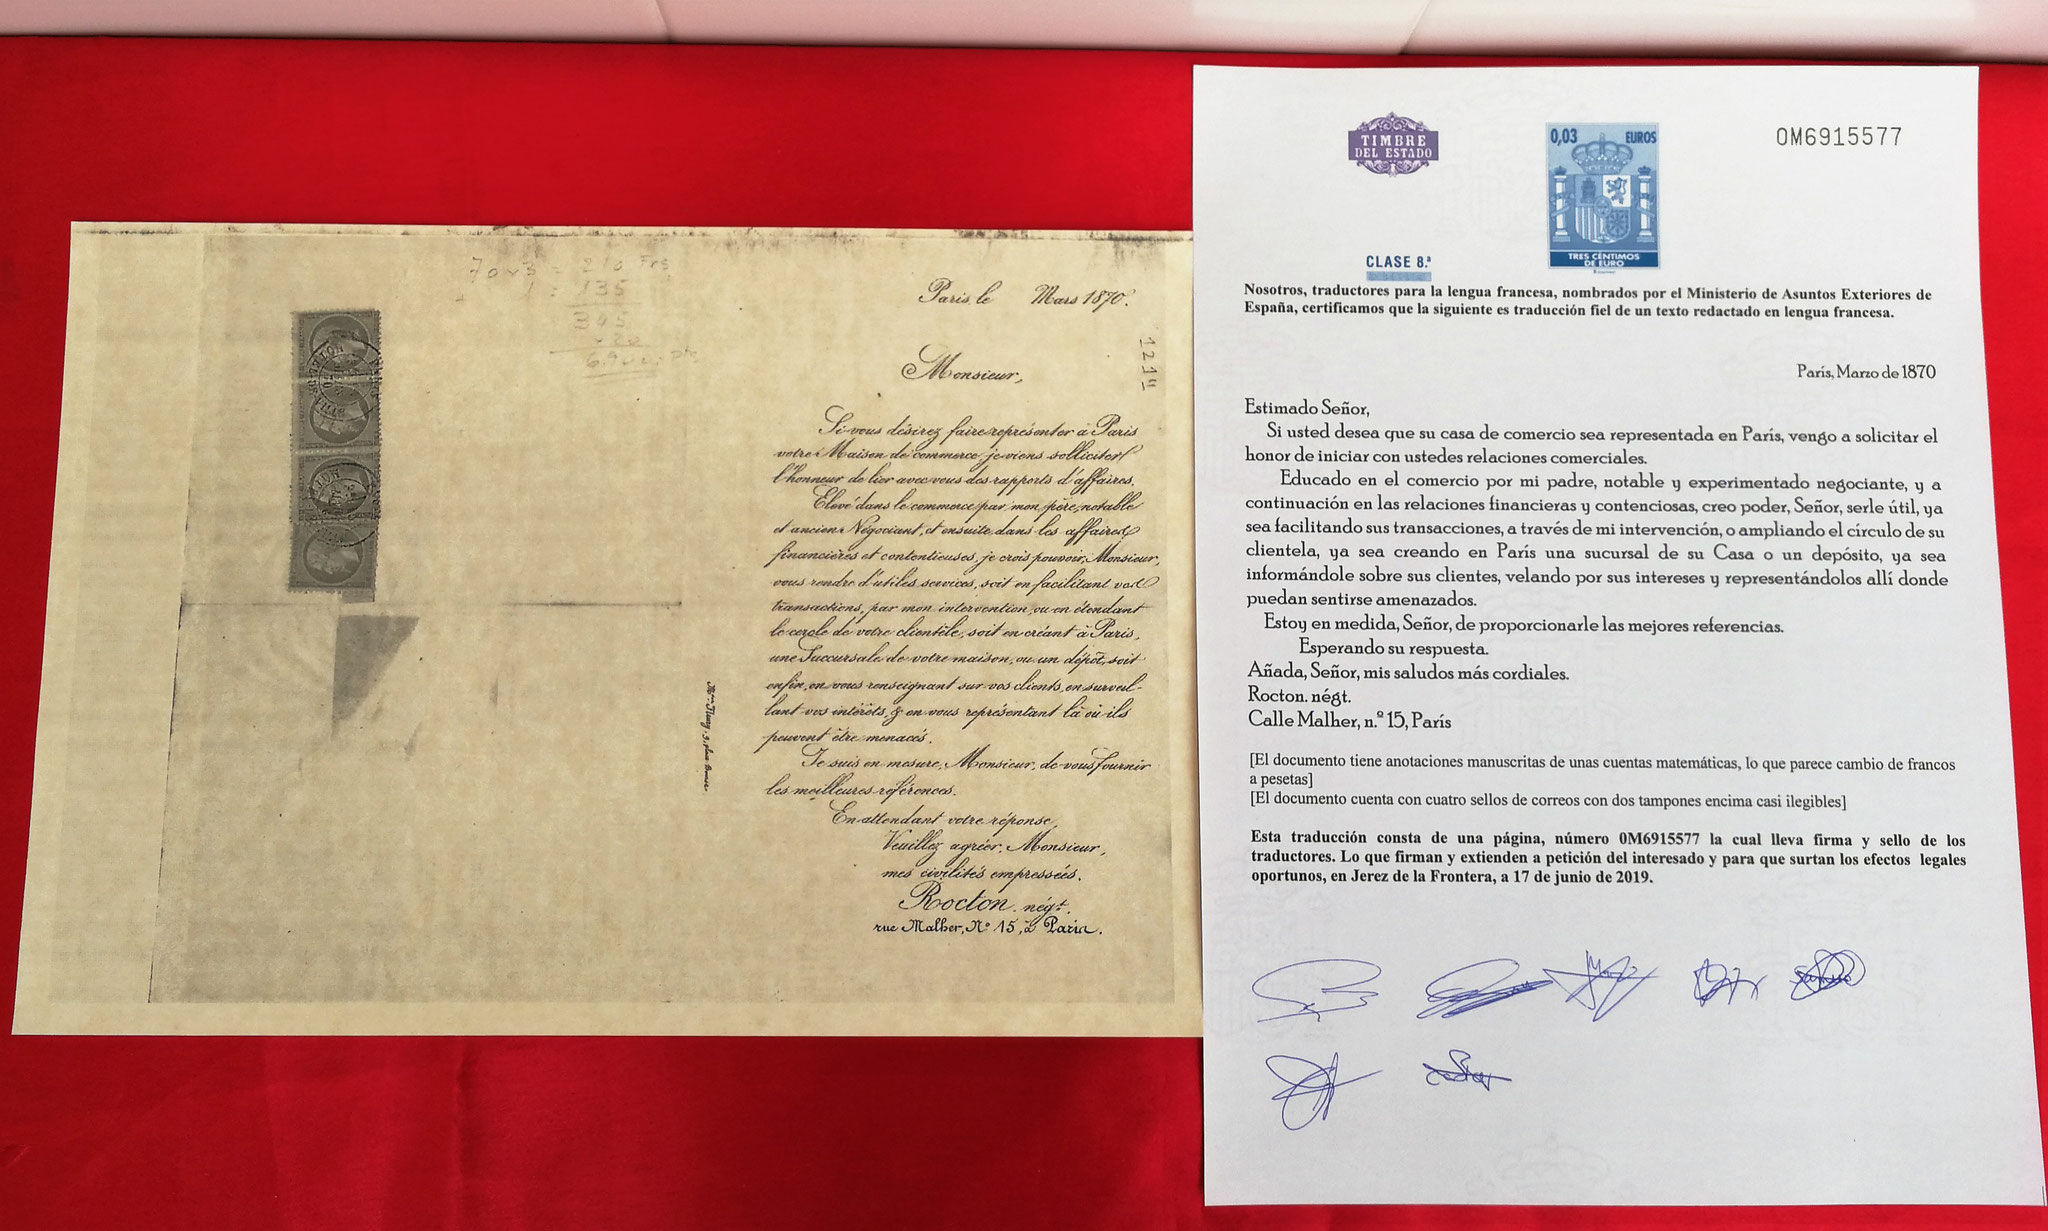 70 x 3 = 210 Frs
1 = 135
345
Paris, le Mars 1870.
1214
Monsieur,
Si vous désirez faire représenter à Paris
votre Maison de commerce, je viens solliciter
l'honneur de lier avec vous des rapports d'affaires.
Elevé dans le commerce par mon père, notable
et ancien Négociant, et ensuite dans les affaires
financières et contentieuses, je crois pouvoir, Monsieur,
vous rendre d'utiles services, soit en facilitant vos
transactions, par mon intervention, ou en étendant
le cercle de votre clientèle, soit en créant à Paris,
une Succursale de votre maison, ou un dépôt, soit
enfin, en vous renseignant sur vos clients, en surveil-
lant vos intérêts, & en vous représentant là où ils
peuvent être menacés.
Je suis en mesure, Monsieur, de vous fournir
les meilleures références.
En attendant votre réponse,
Veuillez agréer, Monsieur,
mes civilités empressées.
Rocton. négt.
rue Malher, N° 15, à Paris.
TIMBRE
DEL ESTADO
0,03 EUROS
TRES CÉNTIMOS
DE EURO
0M6915577
CLASE 8.ª
Nosotros, traductores para la lengua francesa, nombrados por el Ministerio de Asuntos Exteriores de
España, certificamos que la siguiente es traducción fiel de un texto redactado en lengua francesa.
París, Marzo de 1870
Estimado Señor,
Si usted desea que su casa de comercio sea representada en París, vengo a solicitar el
honor de iniciar con ustedes relaciones comerciales.
Educado en el comercio por mi padre, notable y experimentado negociante, y a
continuación en las relaciones financieras y contenciosas, creo poder, Señor, serle útil, ya
sea facilitando sus transacciones, a través de mi intervención, o ampliando el círculo de su
clientela, ya sea creando en París una sucursal de su Casa o un depósito, ya sea
informándole sobre sus clientes, velando por sus intereses y representándolos allí donde
puedan sentirse amenazados.
Estoy en medida, Señor, de proporcionarle las mejores referencias.
Esperando su respuesta.
Añada, Señor, mis saludos más cordiales.
Rocton. négt.
Calle Malher, n.º 15, París
[El documento tiene anotaciones manuscritas de unas cuentas matemáticas, lo que parece cambio de francos
a pesetas]
[El documento cuenta con cuatro sellos de correos con dos tampones encima casi ilegibles]
Esta traducción consta de una página, número 0M6915577 la cual lleva firma y sello de los
traductores. Lo que firman y extienden a petición del interesado y para que surtan los efectos legales
oportunos, en Jerez de la Frontera, a 17 de junio de 2019.